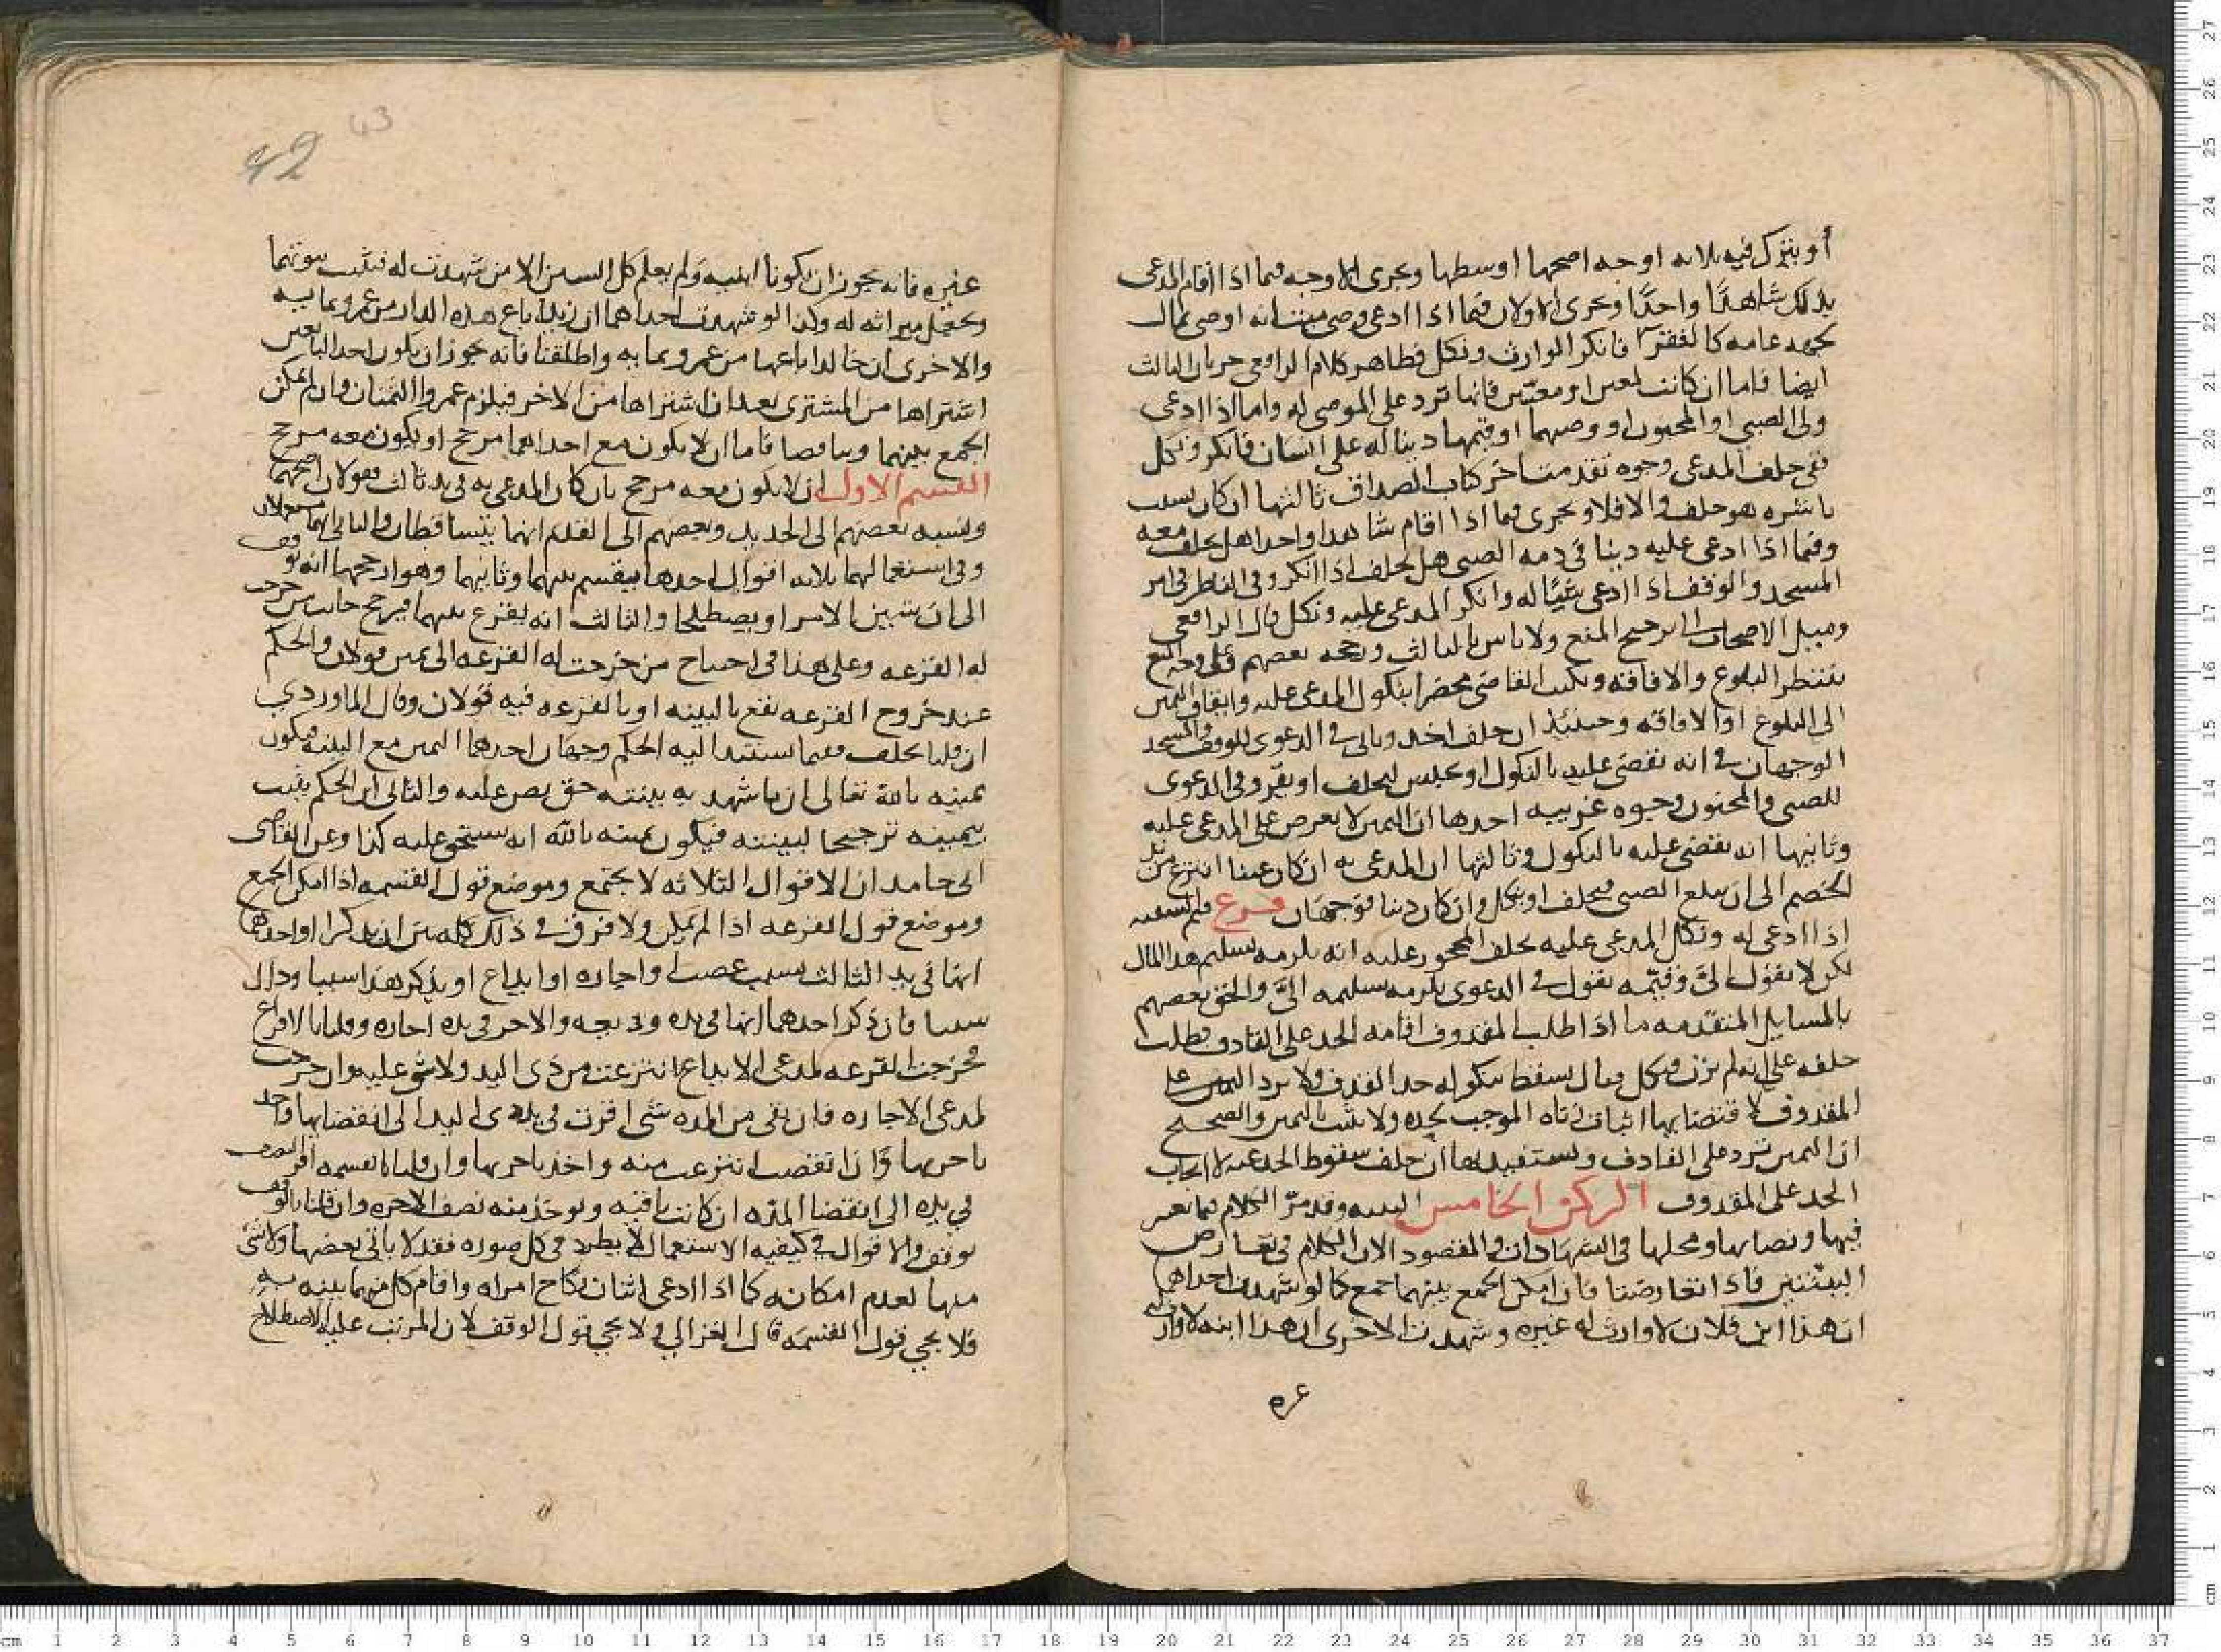 أو يترك فيه ثلاثة اوجه اصحها اوسطها ويجرى الاوجه فيما اذا اقام المدعى
بذلك شاهدًا واحدًا ويجرى الاولان فيما اذا ادعى وصى ميت انه اوصى بمال
لجهه عامه كالفقراء فانكر الوارث ونكل فظاهر كلام الرافعى جريان الثالث
ايضا فاما ان كانت لمعين او معينين فانها ترد على الموصى له واما اذا ادعى
ولى الصبي او المجنون او وصيهما او قيمهما دينا له على انسان فانكر ونكل
ففى حلف المدعى وجوه تقدمت اخر كتاب الصداق ثالثها ان كان بسبب
باشره هو حلف والا فلا ويجرى فيما اذا اقام شاهدا واحدا هل يحلف معه
وفيما اذا ادعى عليه دينا فى ذمه الصبى هل يحلف اذا انكر وفى الناظر فى امر
المسجد والوقف اذا ادعى شيًا له وانكر المدعى عليه ونكل قال الرافعى
وميل الاصحاب الى ترجيح المنع ولا باس بالثالث ورجحه بعضهم فعلى وجه المنع
ينتظر البلوغ والافاقه ويكتب القاضى محضرا بنكول المدعى عليه وايقاف اليمين
الى البلوغ او الافاقه وحينئذ ان حلف اخذ وياتى فى الدعوى للوقف والمسجد
الوجهان فى انه يقضى عليه بالنكول او يحبس ليحلف او يقر وفى الدعوى
للصبى والمجنون وجوه غريبه احدها ان اليمين لا يعرض على المدعى عليه
وثانيها انه يقضى عليه بالنكول وثالثها ان المدعى به ان كان عينا انتزع من يد
الخصم الى ان يبلغ الصبى فيحلف او ينكل وان كان دينا فوجهان فرع قيم السفيه
اذا ادعى له ونكل المدعى عليه يحلف المحجور عليه انه يلزمه تسليم هذا المال
لكن لا يقول الىّ وقيّمه يقول فى الدعوى يلزمه تسليمه الىّ والحق بعضهم
بالمسايل المتقدمه ما اذا طلب المقذوف اقامه الحد على القاذف فطلب
حلفه على انه لم يزن فنكل وقال يسقط بنكوله حد القذف ولا يرد اليمين على
المقذوف لاقتضايها اثبات زناه الموجب لحده ولا يثبت باليمين والصحيح
ان اليمين ترد على القاذف ويستفيد بها ان حلف سقوط الحد عنه لا ايجاب
الحد على المقذوف الركن الخامس البينه وقد مرّ الكلام فيما تعين
فيها ونصابها ومحلها فى الشهادات والمقصود الان الكلام فى تعارض
البينتين فاذا تعارضتا فان امكن الجمع بينهما جمع كما لو شهدت احداهما
ان هذا ابن فلان لا وارث له غيره وشهدت الاخرى ان هذا ابنه لا وارث له
غيره
42 43
غيره فانه يجوز ان يكونا ابنيه ولم يعلم كل البينتين الا من شهدت له فيثبت بنوتهما
ويجعل ميراثه له وكذا لو شهدت احداهما ان زيدا باع هذه الدار من عمرو بمايه
والاخرى ان خالدا باعها من عمرو بمايه واطلقتا فانه يجوز ان يكون احد البايعين
اشتراها من المشترى بعد ان اشتراها من الاخر فيلزم عمروا الثمنان وان لم يمكن
الجمع بينهما وتناقضا فاما ان لا يكون مع احداهما مرجح او يكون معه مرجح
القسم الاول ان لا يكون معه مرجح بان كان المدعى به فى يد ثالث فقولان اصحهما
ونسبه بعضهم الى الجديد وبعضهم الى القديم انهما يتساقطان والثانى انهما يستعملان
وفى استعمالهما ثلاثه اقوال احدها يقسم بينهما وثانيهما وهو ارجحها انه يوقف
الى ان يتبين الامر او يصطلحا والثالث انه يقرع بينهما فيرجح جانب من خرجت
له القرعه وعلى هذا فى احتياج من خرجت له القرعه الى يمين قولان والحكم
عند خروج القرعه يقع بالبينه او بالقرعه فيه قولان وقال الماوردي
ان قلنا يحلف ففيما يستند اليه الحكم وجهان احدهما اليمين مع البينه فيكون
يمينه بالله تعالى ان ما شهد به بينته حق نص عليه والثانى ان الحكم يثبت
بيمينه ترجيحا لبينته فيكون يمينه بالله انه يستحق عليه كذا وعن القاضى
ابى حامد ان الاقوال الثلاثه لا يجتمع وموضع قول القسمه اذا امكن الجمع
وموضع قول القرعه اذا لم يمكن ولا فرق فى ذلك كله بين ان يذكرا او احدهما
انها فى يد الثالث بسبب غصب او اجاره او ايداع او يذكر هذا سببا وذاك
سببا فان ذكر احدهما انها فى يده وديعه والاخر فى يده اجاره وقلنا بالاقراع
فخرجت القرعه لمدعى الايداع انتزعت من ذى اليد ولا شى عليه وان خرجت
لمدعى الاجاره فان بقى من المده شى اقرت فى يد ذى اليد الى انقضايها واخذ
باجرتها وان انقضت انتزعت منه واخذ باجرتها وان قلنا بالقسمه اقر النصف
فى يده الى انقضا المده ان كانت باقيه ويوخذ منه نصف الاجره وان قلنا بالوقف
توقف والاقوال فى كيفيه الاستعمال لا يطرد فى كل صوره فقد لا ياتى بعضها ولا شى
منها لعدم امكانه كما اذا ادعى اثنان نكاح امراه واقام كل منهما بينه به
فلا يجي قول القسمه قال الغزالي ولا يجي قول الوقف لان المرتب عليه الاصطلاح